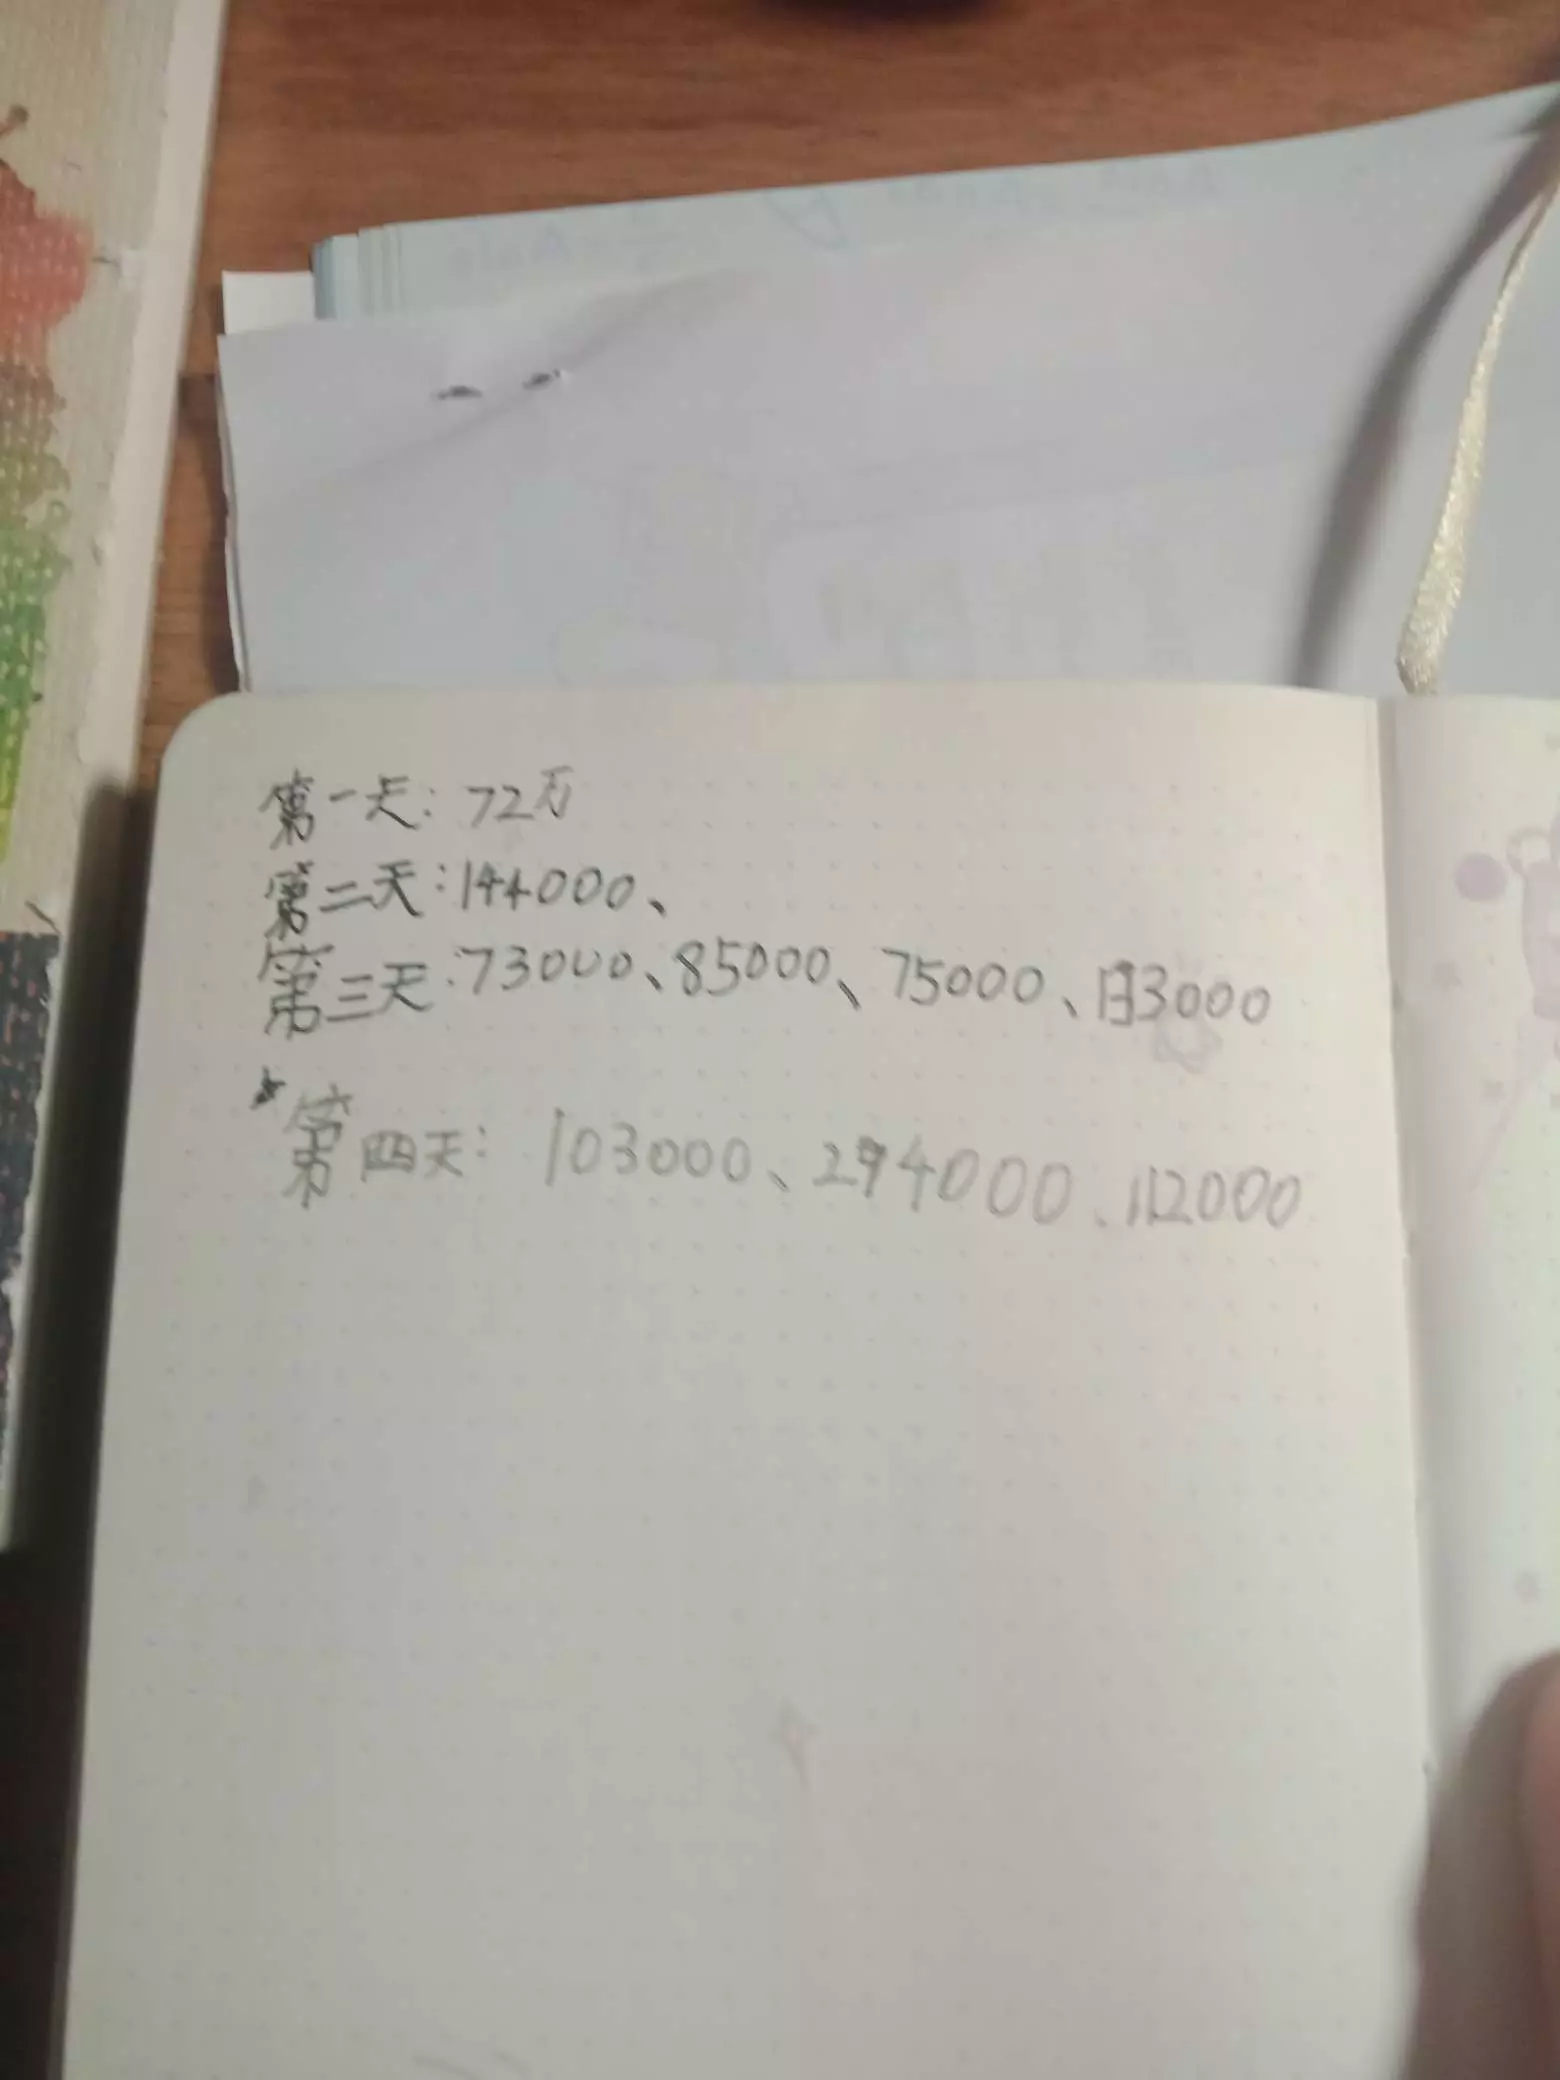 第一天：72万
第二天：144000、
第三天：73000、85000、75000、
第四天：103000、294000、112000